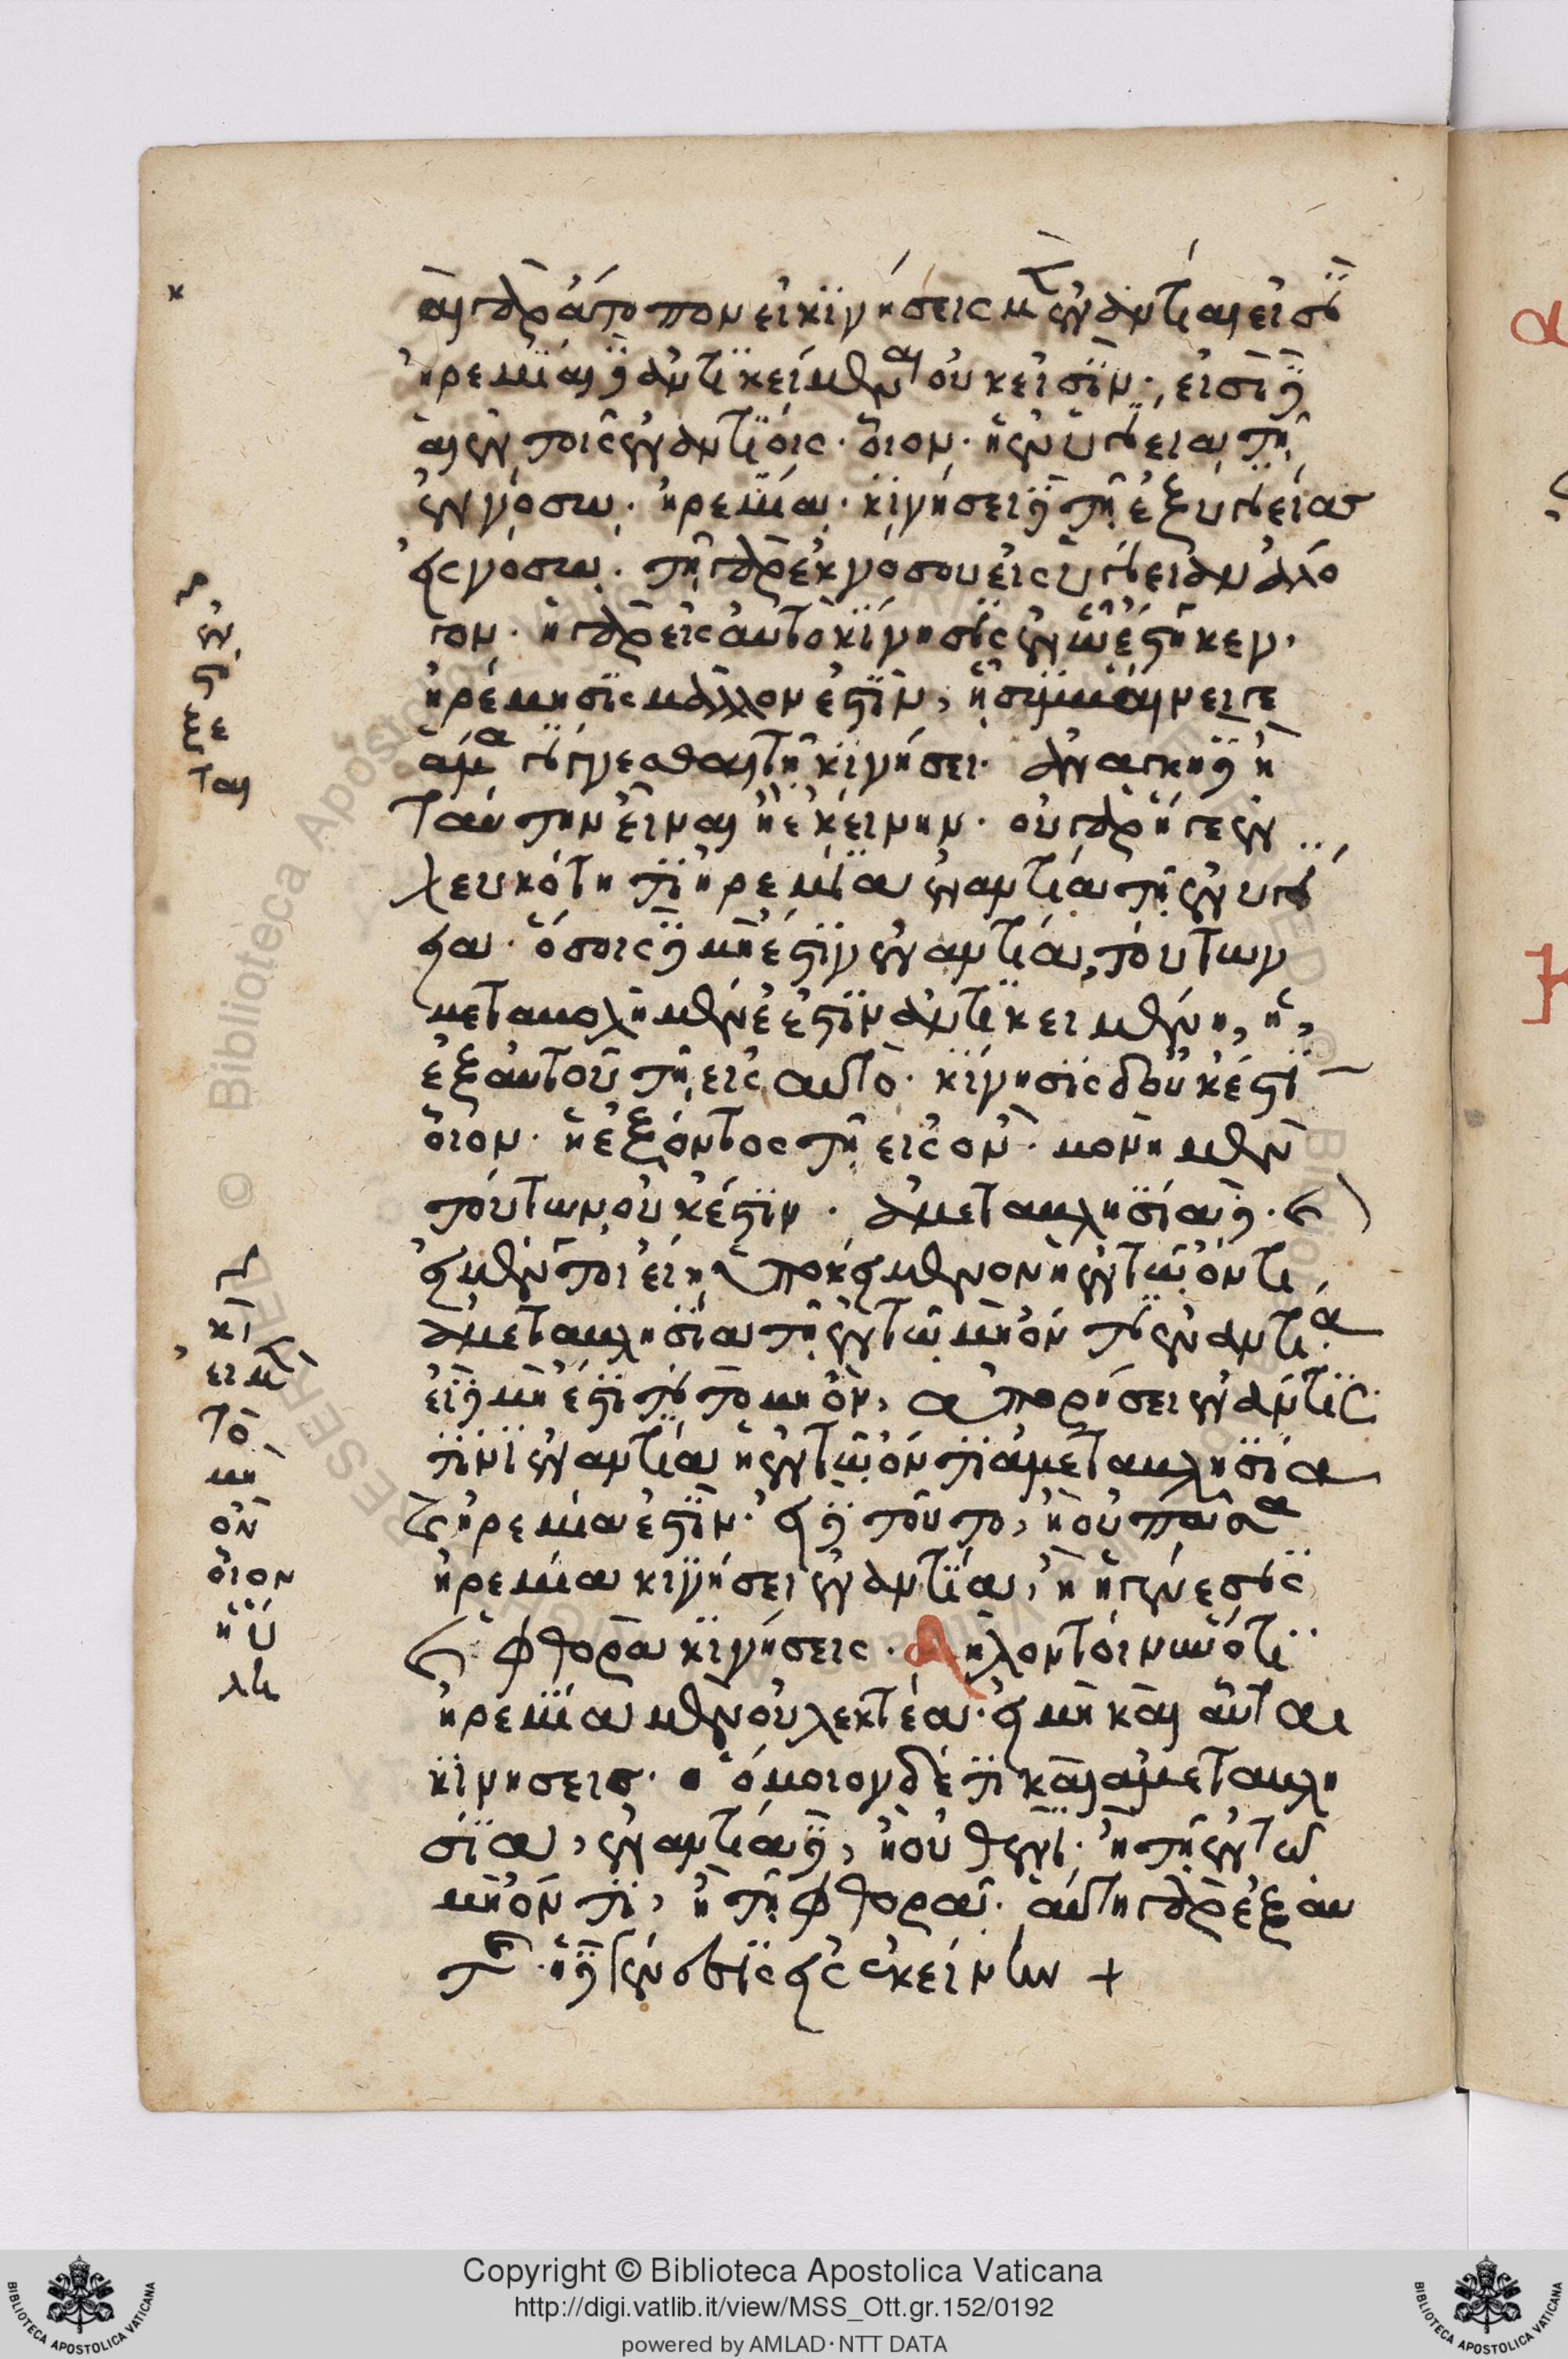 αι γὰρ ἄτοπον εἰ κινήσεις μὲν ἐναντίαι εἰσὶ
ἠρεμίαι δὲ ἀντικείμεναι οὐκ εἰσίν· εἰσὶ δὲ
αἱ ἐν τοῖς ἐναντίοις· οἷον· ἡ ἐν ὑγιεία τῇ
ἐν νόσω· ἠρεμία· κινήσει δὲ τῇ ἐξ υγιείας
εἰς νοσον· τῇ γὰρ ἐκ νόσου εἰς ὑγιειαν ἄλο
γον· ἡ γὰρ εἰς αὐτὸ κίνησις ἐν ὧ ἕστηκεν,
ἠρέμησις μᾶλλον ἐστὶν, ἧ συμβαίνει γε
ἅμα γίγνεσθαι τῇ κινήσει· ἀνάγκη δὲ ἢ
ταύτην εἶναι ἢ ἐκείνην· οὐ γὰρ ἥ γε ἐν
λευκότητι ἠρεμία ἐναντία τῇ ἐν υγι
εία· ὅσοις δὲ μὴ ἔστιν ἐναντία, τούτων
μεταβολὴ μέν ἐστιν ἀντικειμένη, ἡ
ἐξ αὐτοῦ τῇ εἰς αὐτὸ· κίνησις δ' οὐκ ἔστι
οἷον· ἡ ἐξ ὄντος τῇ εἰς ὂν· μονὴ μὲν
τούτων οὐκ ἔστιν· ἀμεταβλησία δὲ· καὶ
εἰ μέν τι εἴη ὑποκείμενον ἡ ἐν τῶ ὄντι
ἀμεταβλησία τῇ ἐν τῶ μὴ ὄντι ἐναντία·
εἰ δὲ μὴ ἔστι τι τὸ μὴ ὂν, ἀπορήσειεν ἄν τις
τίνι ἐναντία ἡ ἐν τῶ ὄντι ἀμεταβλησία
καὶ ἠρεμία ἐστίν· εἰ δὲ τοῦτο, ἢ οὐ πᾶσα
ἠρεμία κινήσει ἐναντία, ἢ ἡ γένεσις
καὶ ἡ φθορὰ κινήσεις· δῆλον τοίνυν ὅτι
ἠρεμία μὲν οὐ λεκτέα· εἰ μὴ καὶ αὗται
κινήσεις· ὅμοιον δέ τι καὶ ἀμεταβλη
σία, ἐναντία δὲ, ἢ οὐθενὶ· ἢ τῇ ἐν τῶ
μὴ ὄντι, ἢ τῇ φθορᾶ· αὕτη γὰρ ἐξ αυ
τῆς· ἡ δὲ γένεσις εἰς ἐκείνην +
τὸ
μὴ
ὂν
οἷον
ἡ ὕ
λη
Copyright © Biblioteca Apostolica Vaticana
http://digi.vatlib.it/view/MSS_Ott.gr.152/0192
powered by AMLAD·NTT DATA